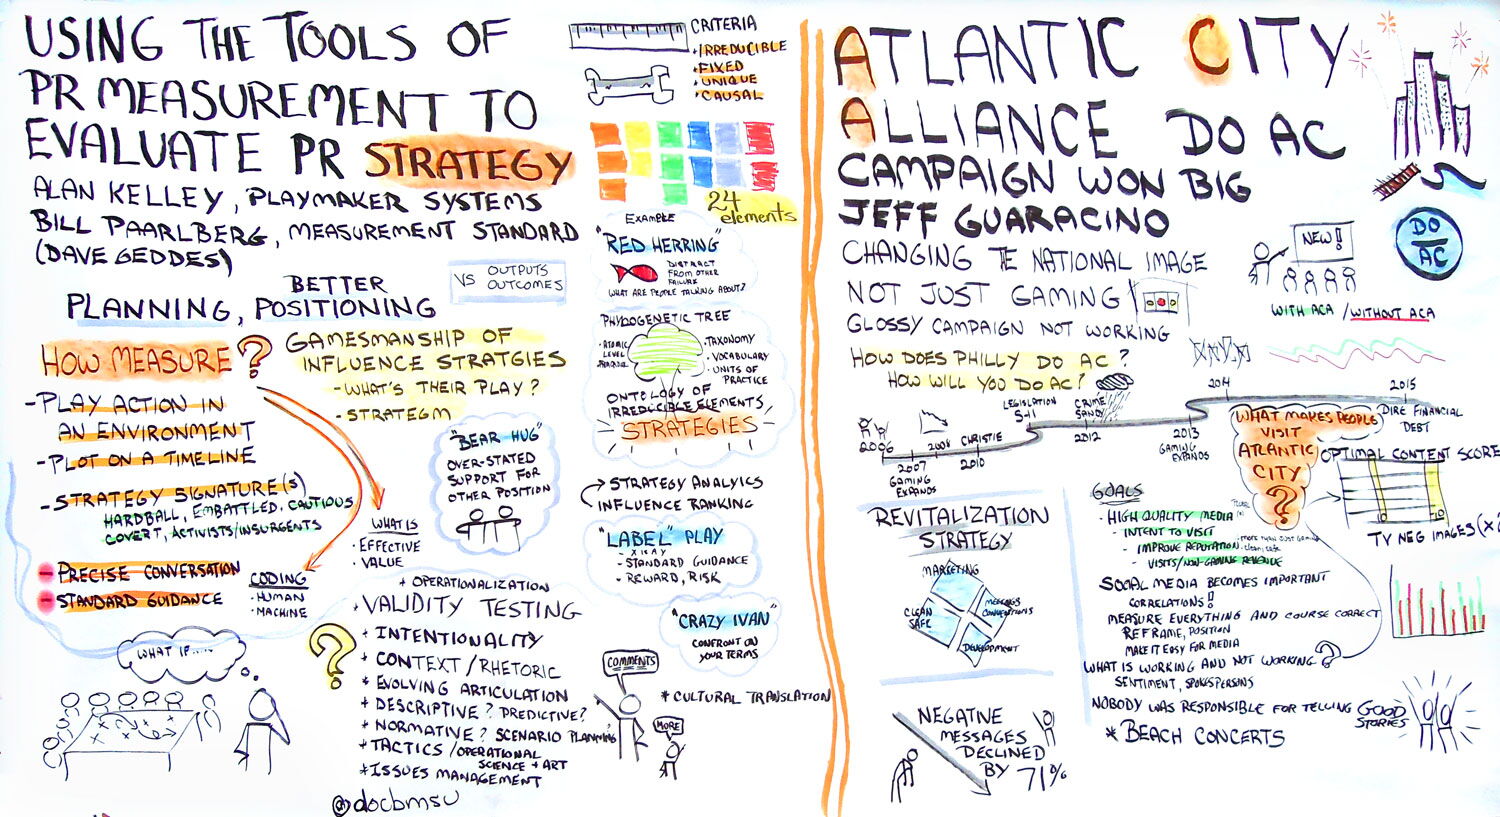 USING THE TOOLS OF
PR MEASUREMENT TO
EVALUATE PR STRATEGY
ALAN KELLEY, PLAYMAKER SYSTEMS
BILL PAARLBERG, MEASUREMENT STANDARD
(DAVE GEDDES)
BETTER
PLANNING, POSITIONING
VS OUTPUTS
OUTCOMES
HOW MEASURE ?
- PLAY ACTION IN
AN ENVIRONMENT
- PLOT ON A TIMELINE
- STRATEGY SIGNATURE(S)
HARDBALL, EMBATTLED, CAUTIOUS
COVERT, ACTIVISTS/INSURGENTS
- PRECISE CONVERSATION
- STANDARD GUIDANCE
CODING
- HUMAN
- MACHINE
WHAT IF.....
GAMESMANSHIP OF
INFLUENCE STRATGIES
- WHAT'S THEIR PLAY?
- STRATEGM
"BEAR HUG"
OVER-STATED
SUPPORT FOR
OTHER POSITION
WHAT IS
- EFFECTIVE
- VALUE
+ OPERATIONALIZATION
+ VALIDITY TESTING
?
+ INTENTIONALITY
* CONTEXT / RHETORIC
* EVOLVING ARTICULATION
+ DESCRIPTIVE? PREDICTIVE?
+ NORMATIVE? SCENARIO PLANNING
+ TACTICS / OPERATIONAL
SCIENCE + ART
* ISSUES MANAGEMENT
@docbmsu
CRITERIA
+ IRREDUCIBLE
+ FIXED
+ UNIQUE
+ CAUSAL
24
elements
EXAMPLE
"RED HERRING"
DISTRACT
FROM OTHER
FAILURE
WHAT ARE PEOPLE TALKING ABOUT?
PHYLOGENETIC TREE
- ATOMIC
LEVEL
- TAXONOMY
- VOCABULARY
- UNITS OF
PRACTICE
ONTOLOGY OF
IRREDUCIBLE ELEMENTS
STRATEGIES
STRATEGY ANALYTICS
INFLUENCE RANKING
"LABEL" PLAY
- XRAY
- STANDARD GUIDANCE
- REWARD, RISK
"CRAZY IVAN"
CONFRONT ON
YOUR TERMS
COMMENTS
MORE
* CULTURAL TRANSLATION
ATLANTIC CITY
ALLIANCE DO AC
CAMPAIGN WON BIG
JEFF GUARACINO
CHANGING TE NATIONAL IMAGE
NOT JUST GAMING
GLOSSY CAMPAIGN NOT WORKING
HOW DOES PHILLY DO AC?
HOW WILL YOU DO AC?
NEW!
DO
AC
WITH ACA / WITHOUT ACA
2006
2007
GAMING
EXPANDS
2008
CHRISTIE
2010
LEGISLATION
S-11
CRIME
SANDY
2012
2013
GAMING
EXPANDS
2014
2015
DIRE FINANCIAL
DEBT
WHAT MAKES PEOPLE
VISIT
ATLANTIC
CITY
?
OPTIMAL CONTENT SCORE
10
10
TV NEG IMAGES
REVITALIZATION
STRATEGY
MARKETING
CLEAN
SAFE
MEETINGS
CONVENTIONS
DEVELOPMENT
NEGATIVE
MESSAGES
DECLINED
BY 71%
GOALS
- HIGH QUALITY MEDIA
- INTENT TO VISIT
- IMPROVE REPUTATION - MORE THAN JUST GAMING
- CLEAN, SAFE
- VISITS/NON-GAMING REVENUE
SOCIAL MEDIA BECOMES IMPORTANT
CORRELATIONS!
MEASURE EVERYTHING AND COURSE CORRECT
REFRAME, POSITION
MAKE IT EASY FOR MEDIA
WHAT IS WORKING AND NOT WORKING ?
SENTIMENT, SPOKESPERSONS
NOBODY WAS RESPONSIBLE FOR TELLING GOOD
STORIES
* BEACH CONCERTS